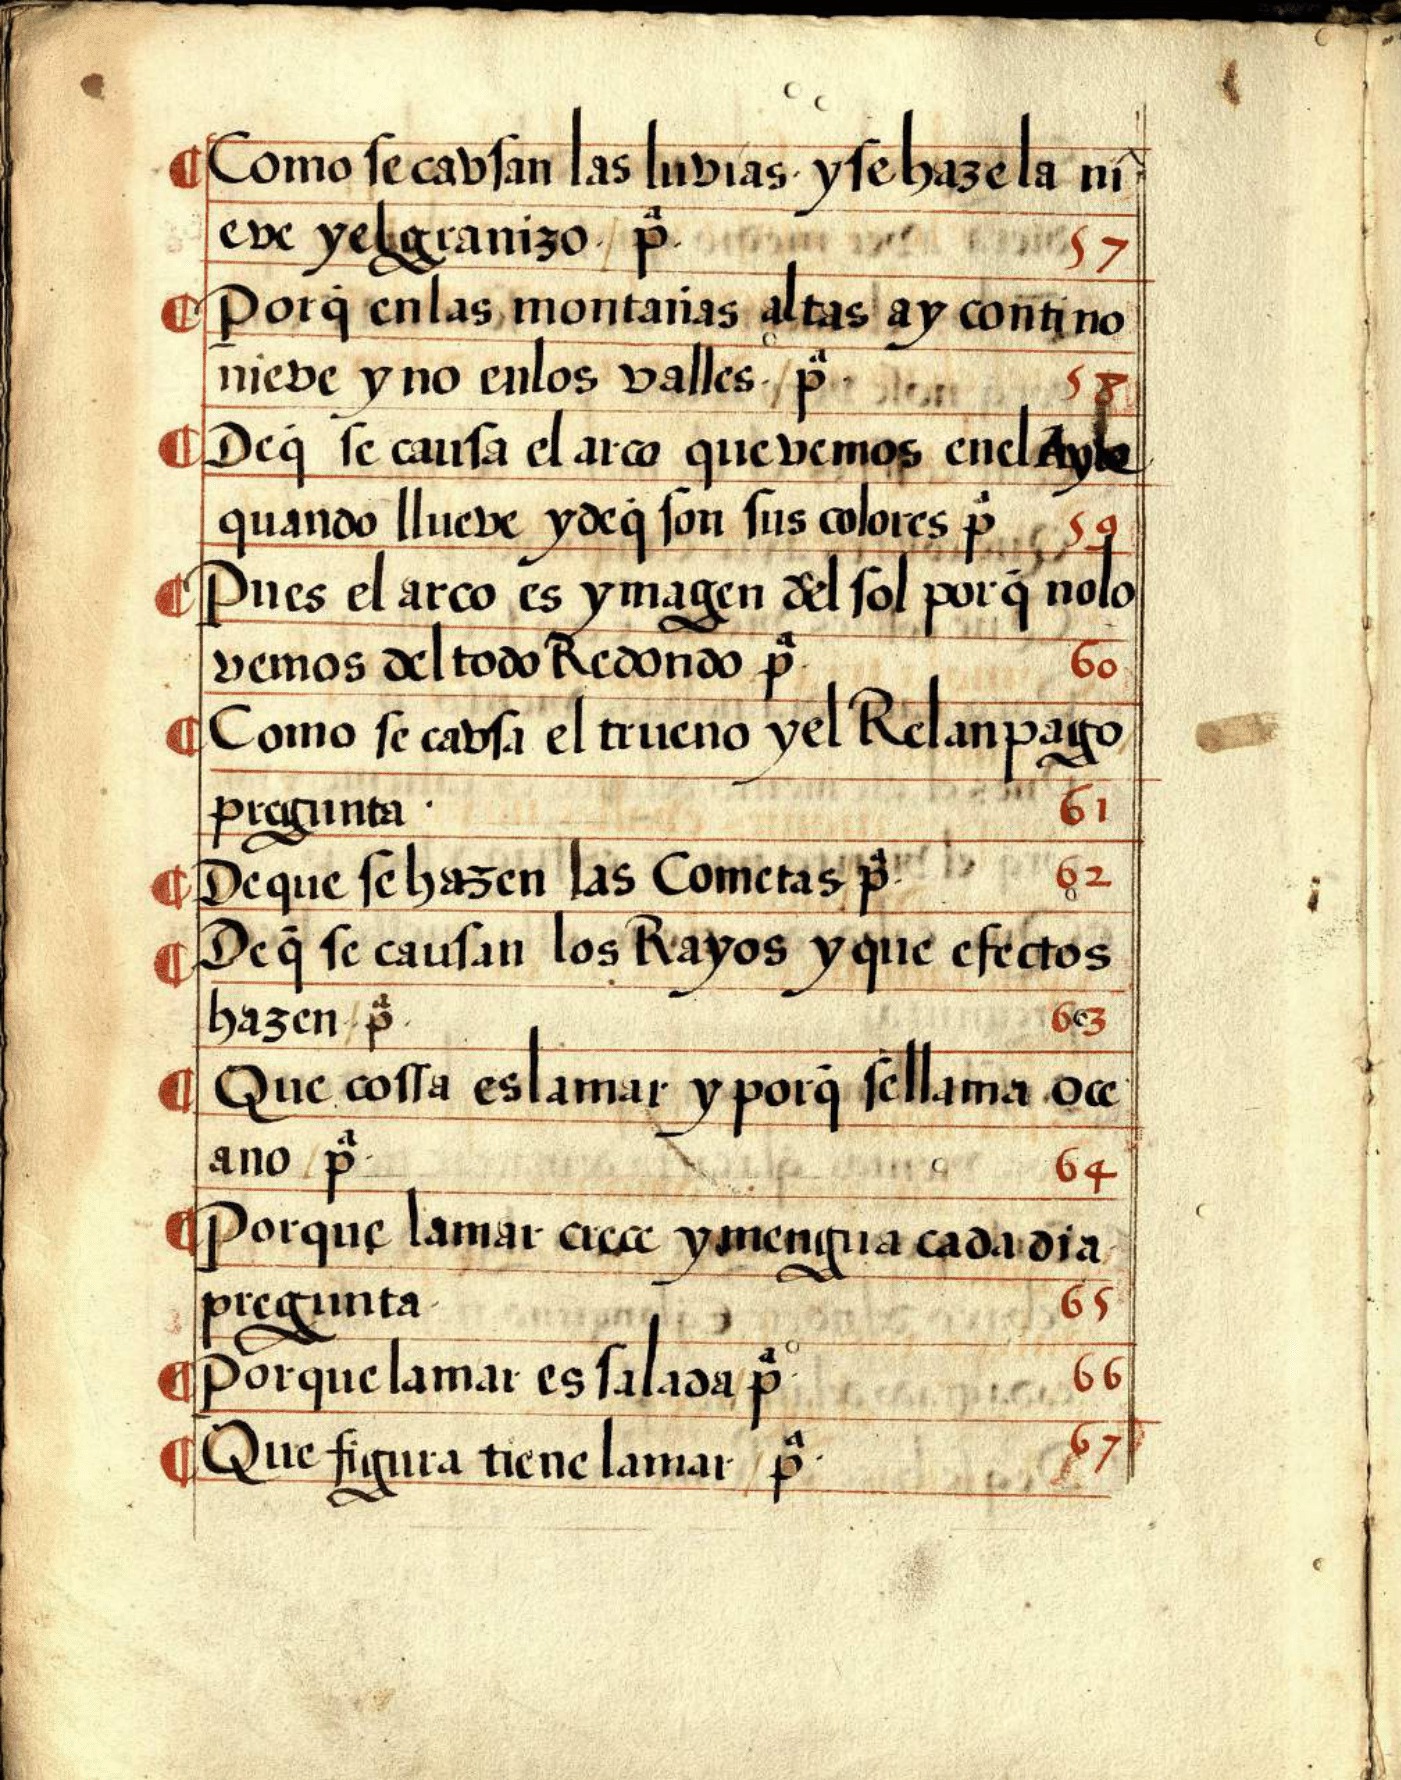 ¶ Como se cavsan las luvias. y se haze la ni
eve y el granizo. pᵃ. 57
¶ Porq̃ en las montañas altas ay contino
nieve y no en los valles. pᵃ. 58
¶ Deq̃ se causa el arco que vemos en el Ayre
quando llueve y deq̃ son sus colores pᵃ 59
¶ Pues el arco es ymagen del sol porq̃ nolo
vemos del todo Redondo pᵃ. 60
¶ Como se cavsa el trueno y el Relanpago
pregunta. 61
¶ De que se hazen las Cometas pᵃ. 62
¶ Deq̃ se causan los Rayos y que efectos
hazen pᵃ. 63
¶ Que cossa es la mar y porq̃ se llama oce
ano pᵃ. 64
¶ Porque la mar crece y mengua cada dia
pregunta. 65
¶ Porque la mar es salada pᵃ. 66
¶ Que figura tiene la mar pᵃ. 67